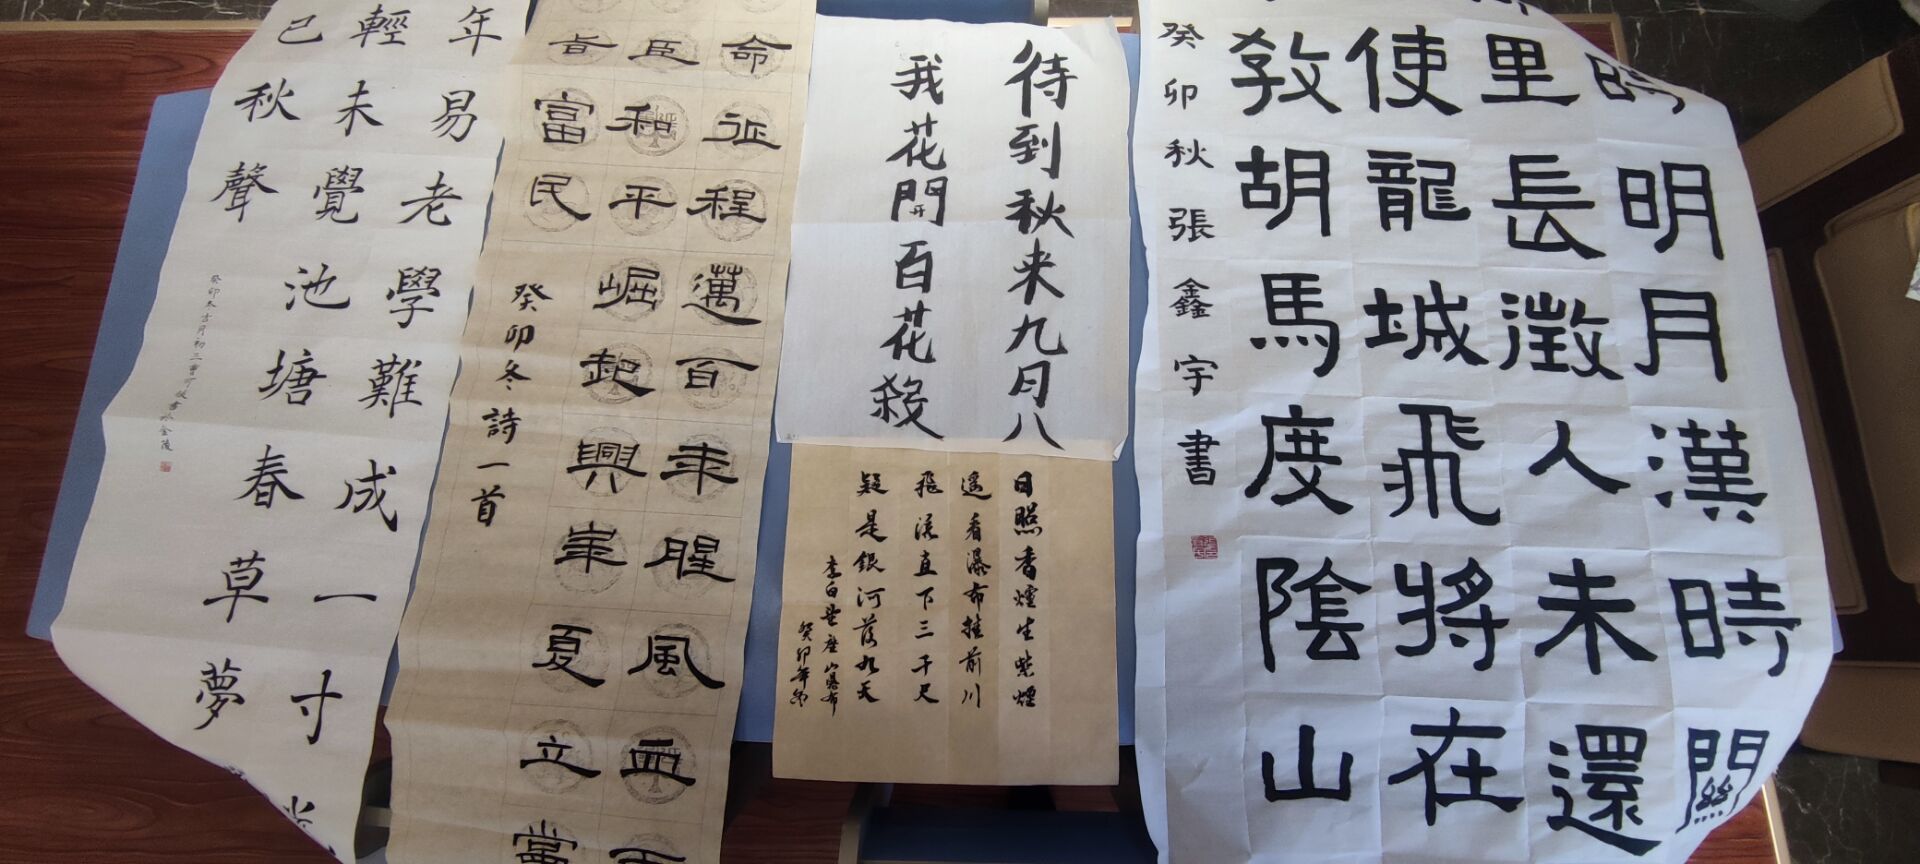 時明月漢時關
里長徵人未還
使龍城飛將在
敎胡馬度陰山
癸卯秋張鑫宇書
待到秋来九月八
我花開百花殺
日照香煙生紫煙
遙看瀑布挂前川
飛流直下三千尺
疑是銀河落九天
李白望廬山瀑布
癸卯年冬
命征程邁百年腥風血雨
臣和平崛起興華夏立黨
旨富民
癸卯冬詩一首
年易老學難成一寸
輕未覺池塘春草夢
已秋聲
癸卯冬吉月初三曹可書於金陵